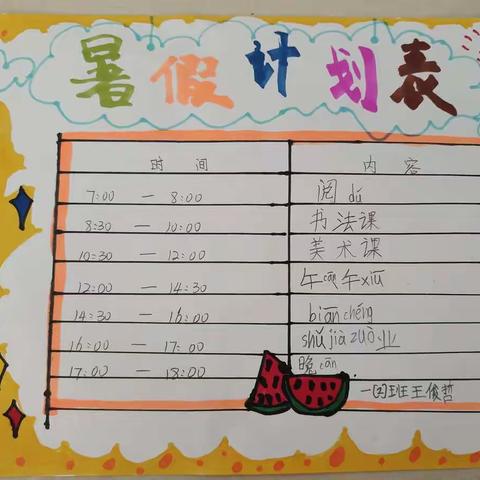 暑假计划表
时间 内容
7:00 — 8:00 阅dú
8:30 — 10:00 书法课
10:30 — 12:00 美术课
12:00 — 14:30 午cān午xiū
14:30 — 16:00 biānchéng
16:00 — 17:00 shǔjiàzuò业
17:00 — 18:00 晚cān
一(2)班王俊哲